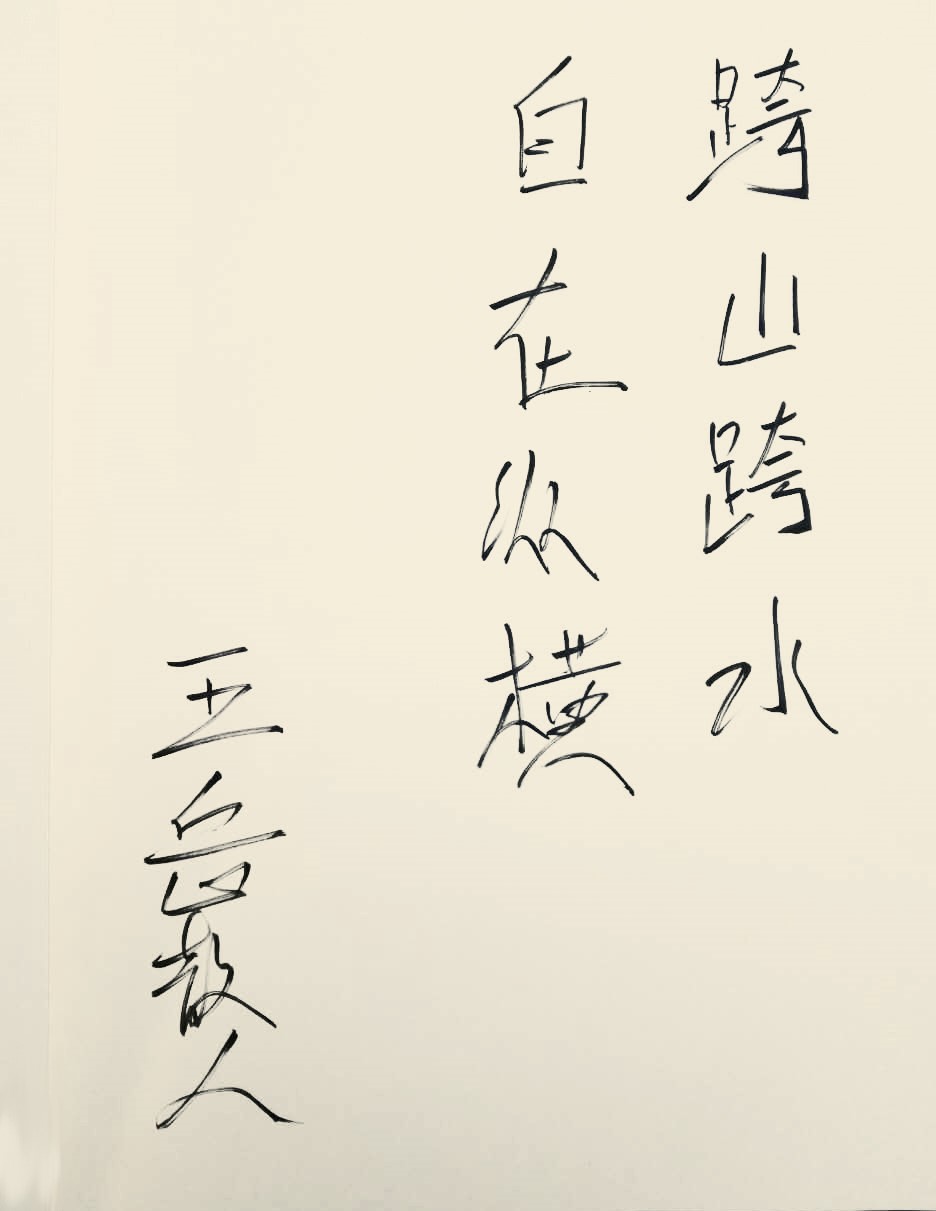 跨山跨水
自在纵横
王岳散人